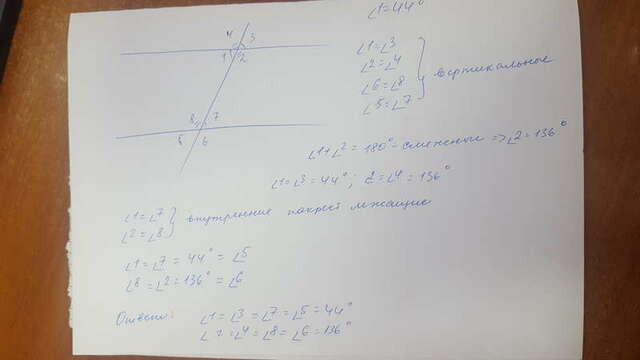 ∠1=44°
4 3
1 2
8 7
5 6
∠1=∠3
∠2=∠4
∠6=∠8
∠5=∠7
вертикальные
∠1+∠2=180°-смежные => ∠2=136°
∠1=∠3=44°; ∠2=∠4=136°
∠1=∠7
∠2=∠8
внутренние накрест лежащие
∠1=∠7=44°=∠5
∠8=∠2=136°=∠6
Ответ: ∠1=∠3=∠7=∠5=44°
∠2=∠4=∠8=∠6=136°